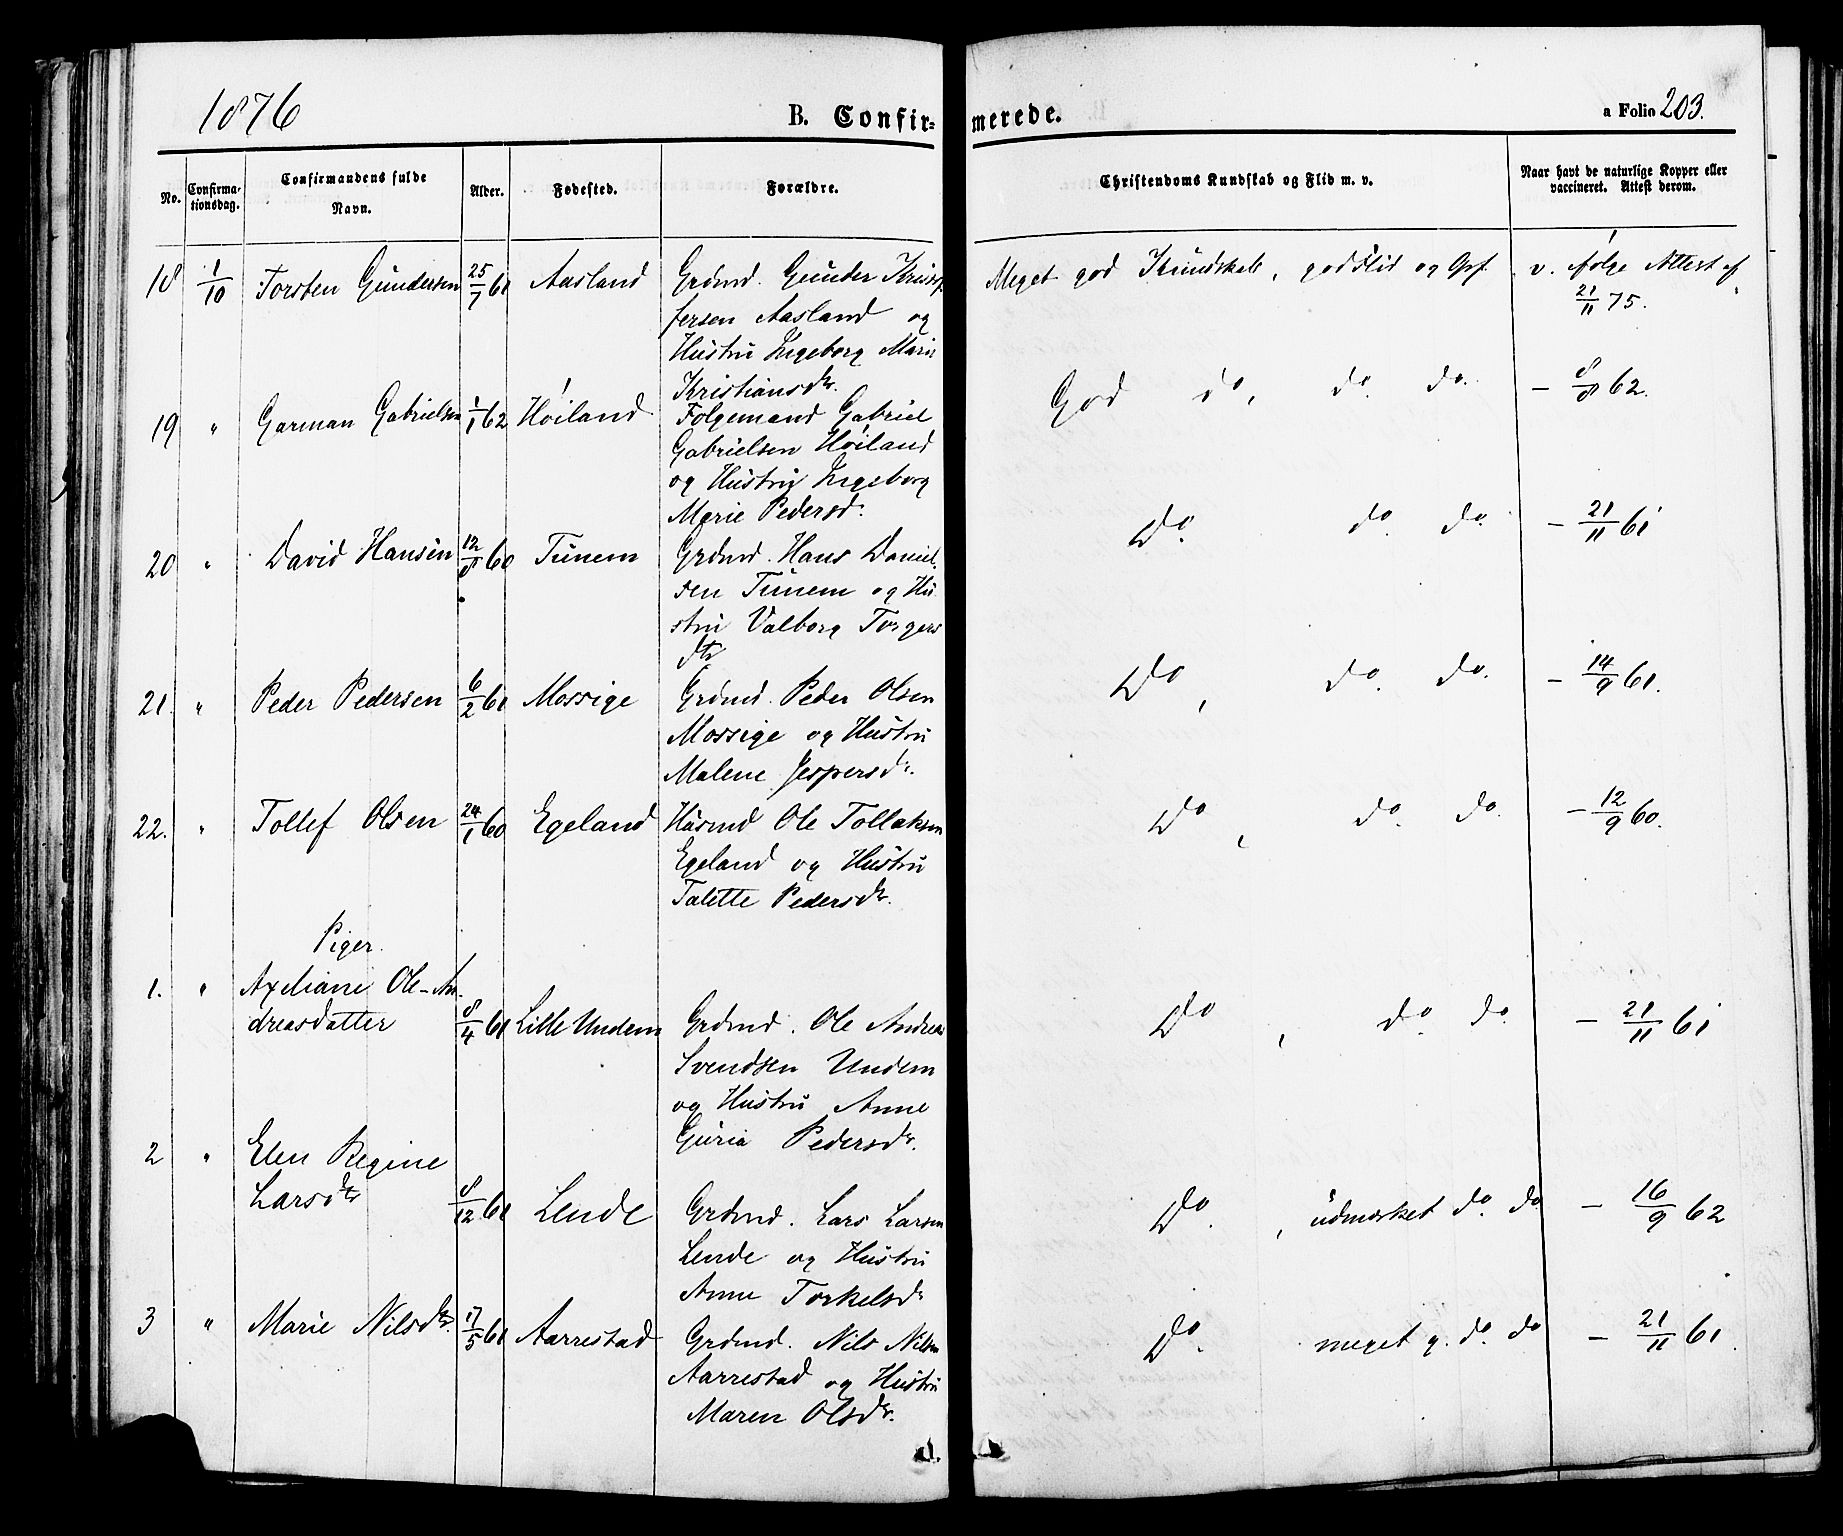 1876
B. Confir-
merede.
a Folio 203.
No.
Confirma-
tionsdag.
Confirmandens fulde
Navn.
Alder.
Fødested.
Forældre.
Christendoms Kundskab og Flid m. v.
Naar havt de naturlige Kopper eller
vaccineret. Attest derom.
18 1/10 Torsten Gundersen 25/7 61 Aasland Grdmd. Gunder
fersen Aasland og
Hustru Ingeborg Marie
Kristiansdtr.
Meget god Kundskab, god Flid og Opf.
v. følge Attest af
21/11 75.
19 " Garman Gabrielsen 1/1 62 Høiland Folgemand Gabriel
Gabrielsen Høiland
og Hustru Ingeborg
Marie Pedersd.
God do, do. do. - 8/8 62.
20 " David Hansen 12/8 60 Tunem Grdmd. Hans Daniel
sen Tunem og Hu
stru Valborg Torgers
dtr
Do. do. do. - 21/11 61
21. " Peder Pedersen 6/2 61 Mossige Grdmd. Peder Olsen
Mossige og Hustru
Malene Jespersdr.
Do, do. do. - 14/9 61.
22. " Tollef Olsen 24/1 60 Egeland Husmd Ole Tollaksen
Egeland og Hustru
Talette Pedersdr.
Do, do. do. - 12/9 60.
Piger.
1. " Axeliane Ole-An-
dreasdatter 8/4 61 Lille Undem Grdmd. Ole Andreas
Svendsen Undem
og Hustru Anne
Guria Pedersdr.
Do, do. do. - 21/11 61
2 " Elen Regine
Larsdtr 8/12 61 Lende Grdmd. Lars Larsen
Lende og Hustru
Anne Torkelsdr
Do., udmærket do. do - 16/9 62
3 " Marie Nilsdtr. 17/5 61 Aarrestad Grdmd. Nils Nilsen
Aarrestad og Hustru
Maren Olsdr.
Do. meget g. do. do - 21/11 61.